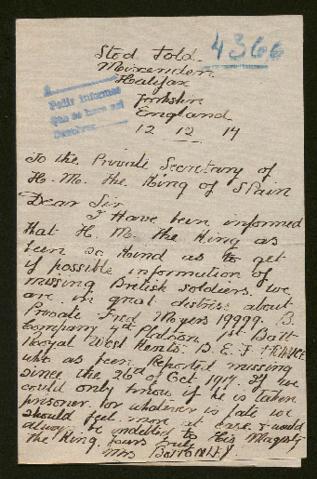 Stod Fold.
4366
Mixenden
Halifax
Yorkshire
England
Pedir informes
que se hace así
12 12 14
To the Private Secretary of
H. M. the King of Spain
Dear Sir
I Have been informed
that H. M. the King as
been so kind as to get
if possible information of
missing British soldiers. We
are in great distress about
Private Fred Moyers 19979. B.
Company 4th Platoon, 1st Batt
Royal West Kents. B. E. F. France
who as been Reported missing
since the 26th of Oct 1917. If we
could only know if he is taken
prisoner or whatever is fate we
should feel more at ease. I would
always be indebted to His Majesty
the King. Yours truly
Mrs